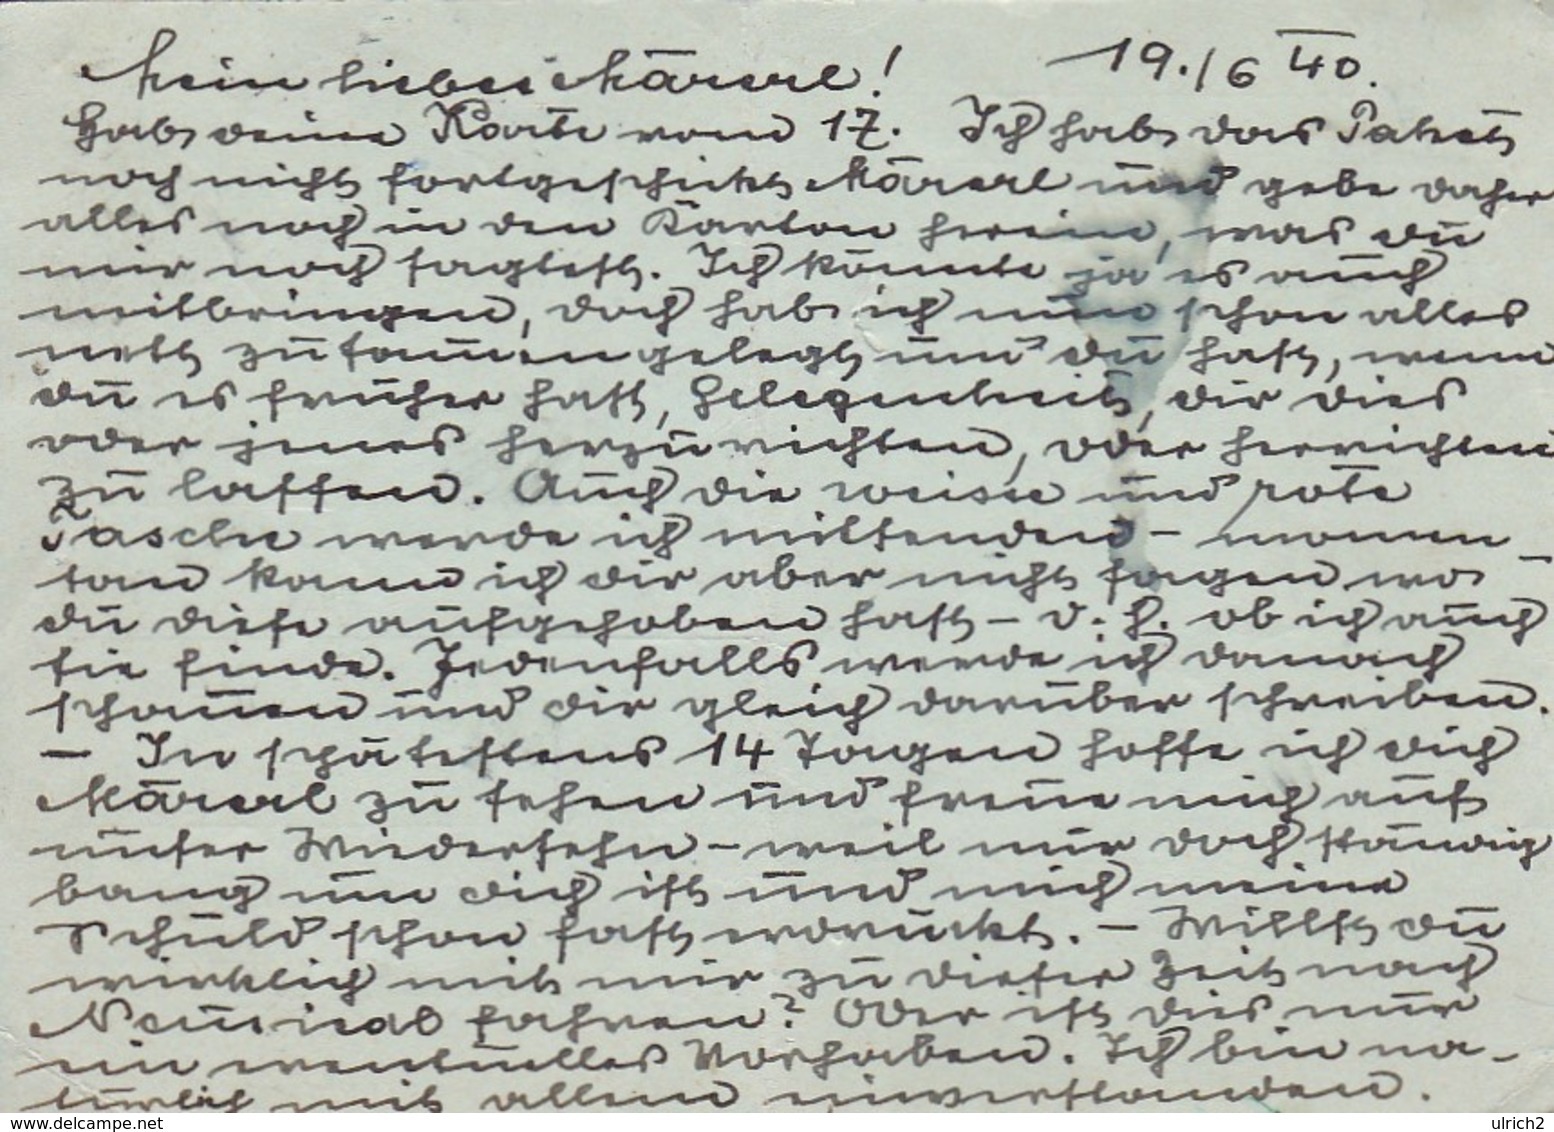 Mein liebes Märerl! 19./6 40.
Hab deine Karte vom 17. Ich hab das Paket
noch nicht fortgeschickt Märerl und gebe daher
alles noch in den Karton herein, was du
mir noch sagtest. Ich könnte ja es auch
mitbringen, doch hab ich nun schon alles
nett zusammengelegt und du hast, wenn
du es früher hast, Gelegenheit, dir dies
oder jenes herzurichten, oder herrichten
zu lassen. Auch die weisse und rote
Tasche werde ich mitsenden - momen-
tan kann ich dir aber nicht sagen wo
du diese aufgehoben hast - d. h. ob ich auch
sie finde. Jedenfalls werde ich danach
schauen und dir gleich darüber schreiben.
- In spätestens 14 Tagen hoffe ich dich
Märerl zu sehen und freue mich auf
unser Wiedersehn - weil mir doch ständig
bang um dich ist und mich meine
Schuld schon fast erdrückt. - Willst du
wirklich mit mir zu dieser Zeit nach
fahren? Oder ist dies nur
ein eventuelles Vorhaben. Ich bin na-
türlich mit allem einverstanden.
delcampe.net
ulrich2